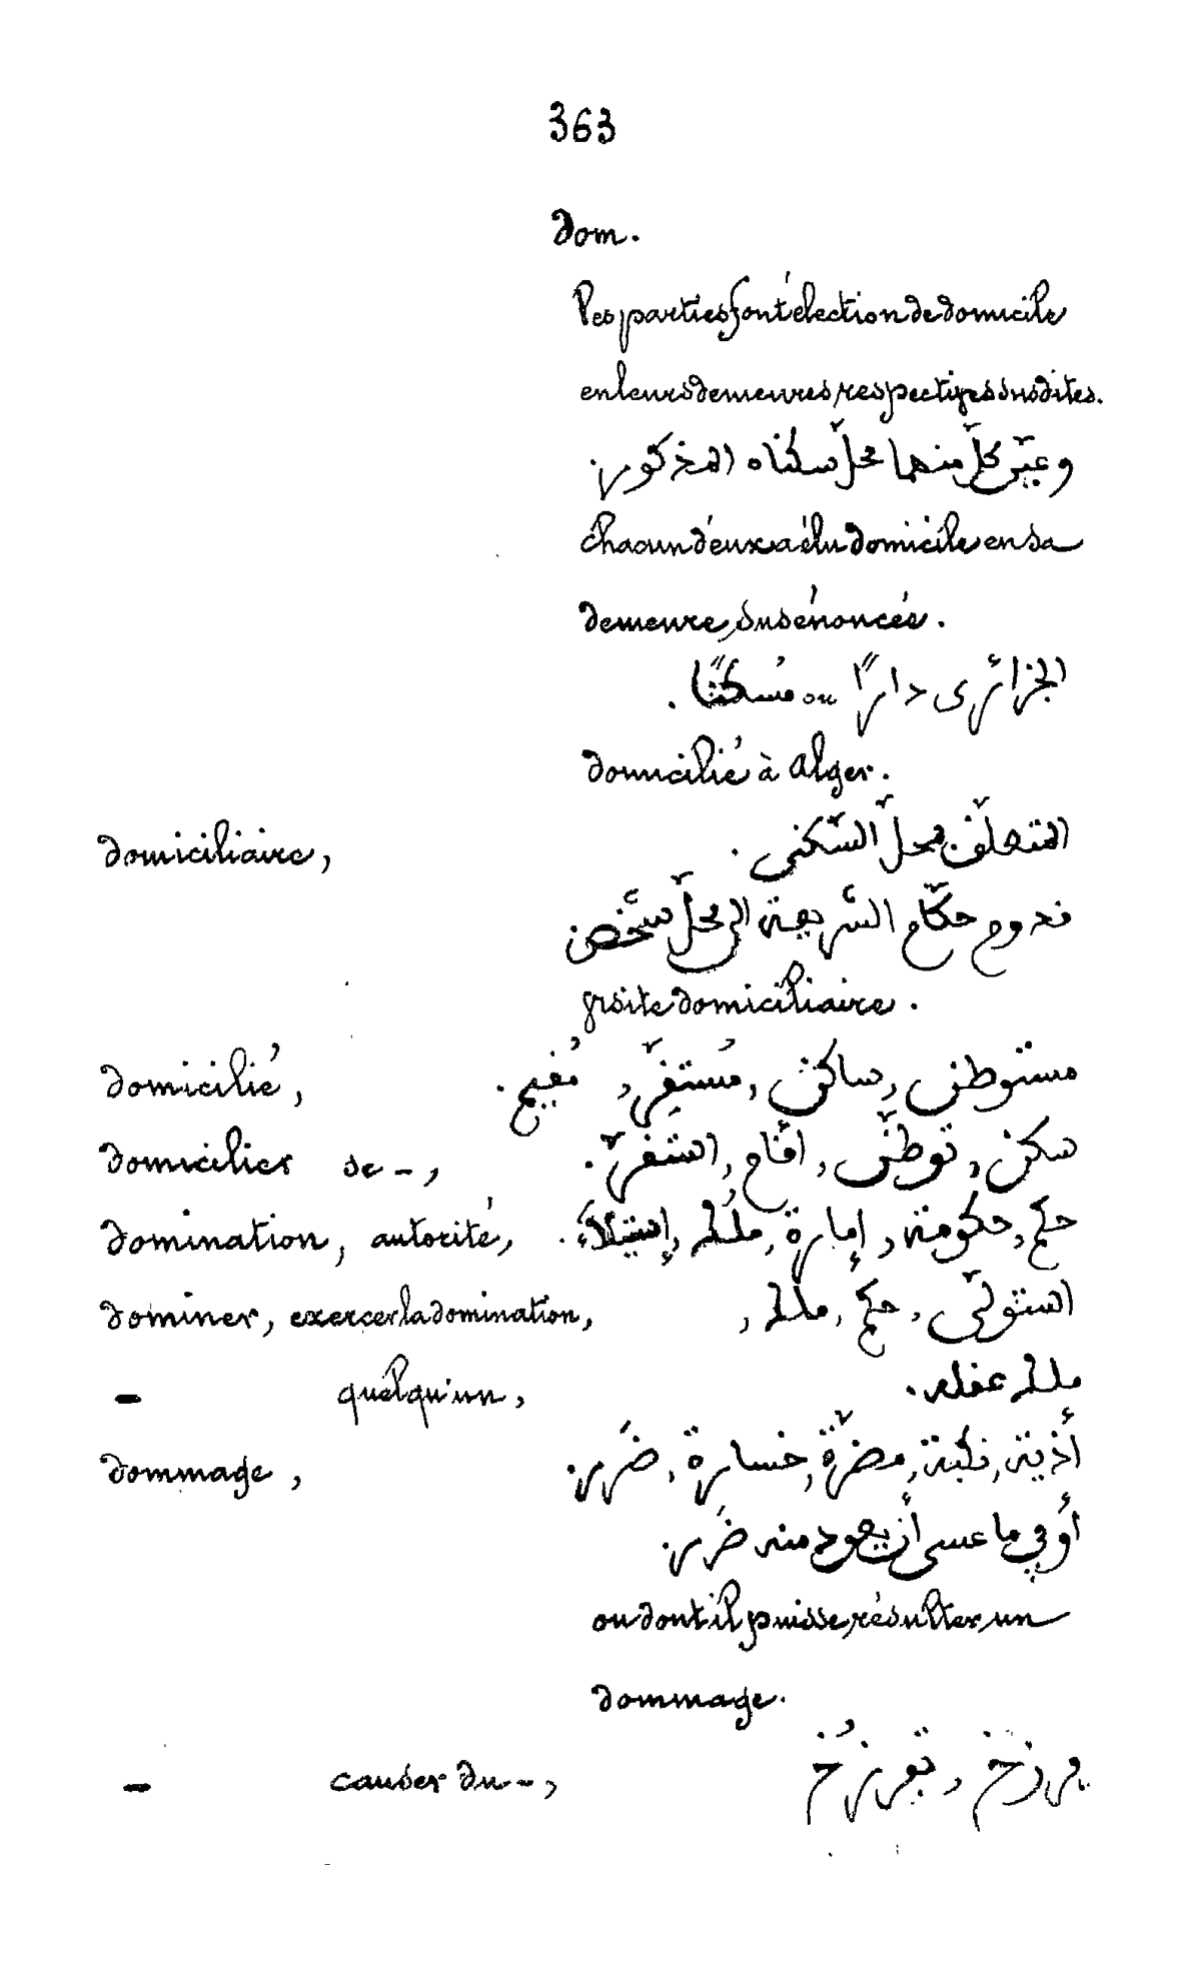 363
dom.
les parties font élection de domicile
en leurs demeures respectives susdites.
وعيّن كلّ منهما محلّ سكناه المذكور.
chacun d'eux a élu domicile en sa
demeure susénoncée.
الجزائرى دارًا ou مُسكنًا.
domicilié à Alger.
domiciliaire, المتعلّق بمحلّ السّكنى.
قدوم حكّام الشّريعة الى محلّ شخص
visite domiciliaire.
domicilié, مستوطن, ساكن, مُستقِرّ, مُقيم.
domicilier se –, سكن, توطّن, أقام, استقرّ.
domination, autorité, حكم, حكومة, إمارة, ملك, إستيلاء.
dominer, exercer la domination, استولّى, حكم, ملك,
– quelqu'un, ملك عقله.
dommage, أذية, نكبة, مضرّة, خسارة, ضَرر.
أو في ما عسى أن يعود منه ضَرر.
ou dont il puisse résulter un
dommage.
– causer du –,